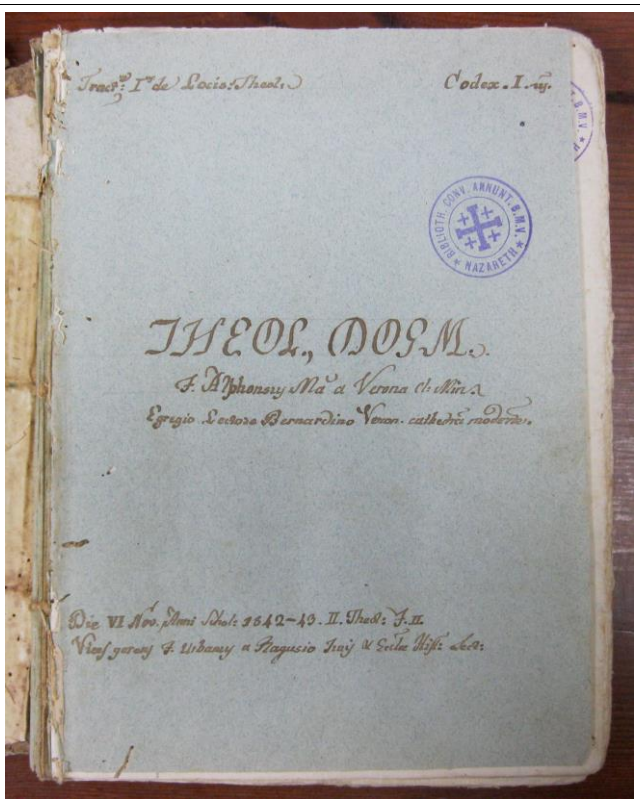 Tract.s I.s de Locis. Theol.
Codex. I.
BIBLIOTH. CONV. ANNUNT. B.M.V. NAZARETH
THEOL., DOGM.
F. Alphonsus Ma. a Verona Cl. Min.
Egregio Lectore Bernardino Veron. cathedrā
Die VI Nov. Anni Schol: 1842-43. II. Theol:
Vices gerens F. Urbanus a Ragusio Lect: